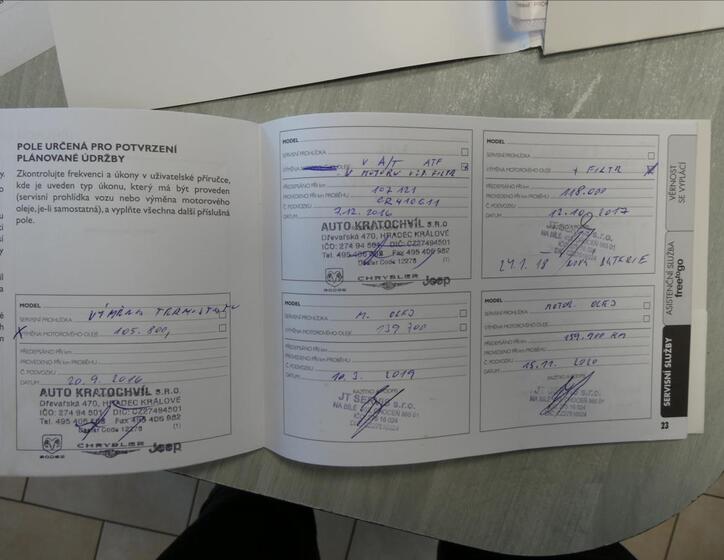 POLE URČENÁ PRO POTVRZENÍ
PLÁNOVANÉ ÚDRŽBY
Zkontrolujte frekvenci a úkony v uživatelské příručce,
kde je uveden typ úkonu, který má být proveden
(servisní prohlídka vozu nebo výměna motorového
oleje,je-li samostatná), a vyplňte všechna další příslušná
pole.
MODEL
SERVISNÍ PROHLÍDKA VÝMĚNA TERMOSTATU
X VÝMĚNA MOTOROVÉHO OLEJE 105.800,
PŘEDEPSÁNO PŘI km
PROVEDENO PŘI km PROBĚHU
Č. PODVOZKU
DATUM 20.9. 2016
AUTO KRATOCHVÍL S.R.O.
Dřevařská 470, HRADEC KRÁLOVÉ
IČO: 274 94 501 DIČ: CZ27494501
Tel. 495 406 Fax 495 406 982
Dealer Code 12278 (1)
DODGE CHRYSLER Jeep
MODEL
SERVISNÍ PROHLÍDKA V A/T ATF
VÝMĚNA OLEJE V MOTORU FILTR
PŘEDEPSÁNO PŘI km 107 121
PROVEDENO PŘI km PROBĚHU CR410611
Č. PODVOZKU
DATUM 7.12. 2016
AUTO KRATOCHVÍL S.R.O.
Dřevařská 470, HRADEC KRÁLOVÉ
IČO: 274 94 501 DIČ: CZ27494501
Tel. 495 406 Fax 495 406 982
Dealer Code 12278 (1)
DODGE CHRYSLER Jeep
MODEL
SERVISNÍ PROHLÍDKA M. OLEJ
VÝMĚNA MOTOROVÉHO OLEJE 139 700
PŘEDEPSÁNO PŘI km
PROVEDENO PŘI km PROBĚHU
Č. PODVOZKU
DATUM 10.3. 2019
RAZÍTKO
JT s.r.o.
NA BÍLÉ
MODEL
SERVISNÍ PROHLÍDKA
VÝMĚNA MOTOROVÉHO OLEJE + FILTR X
PŘEDEPSÁNO PŘI km 118.000
PROVEDENO PŘI km PROBĚHU
Č. PODVOZKU
DATUM 12.10. 2017
NA BÍLÉ
24.1.18 NOVÁ BATERIE
MODEL
SERVISNÍ PROHLÍDKA MOTOR. OLEJ
VÝMĚNA MOTOROVÉHO OLEJE
PŘEDEPSÁNO PŘI km 159.900 KM
PROVEDENO PŘI km PROBĚHU
Č. PODVOZKU
DATUM 15.11. 2020
RAZÍTKO
JT s.r.o.
NA BÍLÉ
VĚRNOST
SE VYPLÁCÍ
ASISTENČNÍ SLUŽBA
freetogo
SERVISNÍ SLUŽBY
23